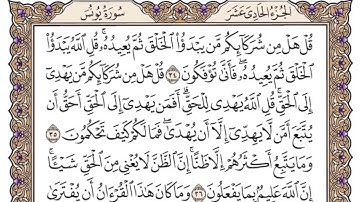 الجزء الحادي عشر سورة يونس
قُلْ هَلْ مِن شُرَكَآئِكُم مَّن يَبْدَؤُا۟ ٱلْخَلْقَ ثُمَّ يُعِيدُهُۥ ۚ قُلِ ٱللَّهُ يَبْدَؤُا۟
ٱلْخَلْقَ ثُمَّ يُعِيدُهُۥ ۖ فَأَنَّىٰ تُؤْفَكُونَ ٣٤ قُلْ هَلْ مِن شُرَكَآئِكُم مَّن يَهْدِىٓ
إِلَى ٱلْحَقِّ ۚ قُلِ ٱللَّهُ يَهْدِى لِلْحَقِّ ۗ أَفَمَن يَهْدِىٓ إِلَى ٱلْحَقِّ أَحَقُّ أَن
يُتَّبَعَ أَمَّن لَّا يَهِدِّىٓ إِلَّآ أَن يُهْدَىٰ ۖ فَمَا لَكُمْ كَيْفَ تَحْكُمُونَ ٣٥
وَمَا يَتَّبِعُ أَكْثَرُهُمْ إِلَّا ظَنًّا ۚ إِنَّ ٱلظَّنَّ لَا يُغْنِى مِنَ ٱلْحَقِّ شَيْـًٔا ۚ
إِنَّ ٱللَّهَ عَلِيمٌۢ بِمَا يَفْعَلُونَ ٣٦ وَمَا كَانَ هَٰذَا ٱلْقُرْءَانُ أَن يُفْتَرَىٰ